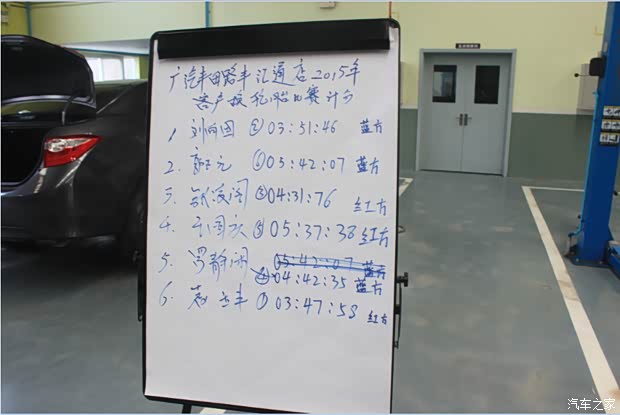 广汽丰田路丰汇通店2015年
客户换轮胎比赛计分
1. 刘向国 ② 03:51:46 蓝方
2. ① 05:42:07 蓝方
3. ③ 04:31:76 红方
4. ③ 05:37:38 红方
5. 罗静 05:42:07 蓝方
04:42:35 蓝方
6. ① 03:47:58 红方
汽车之家